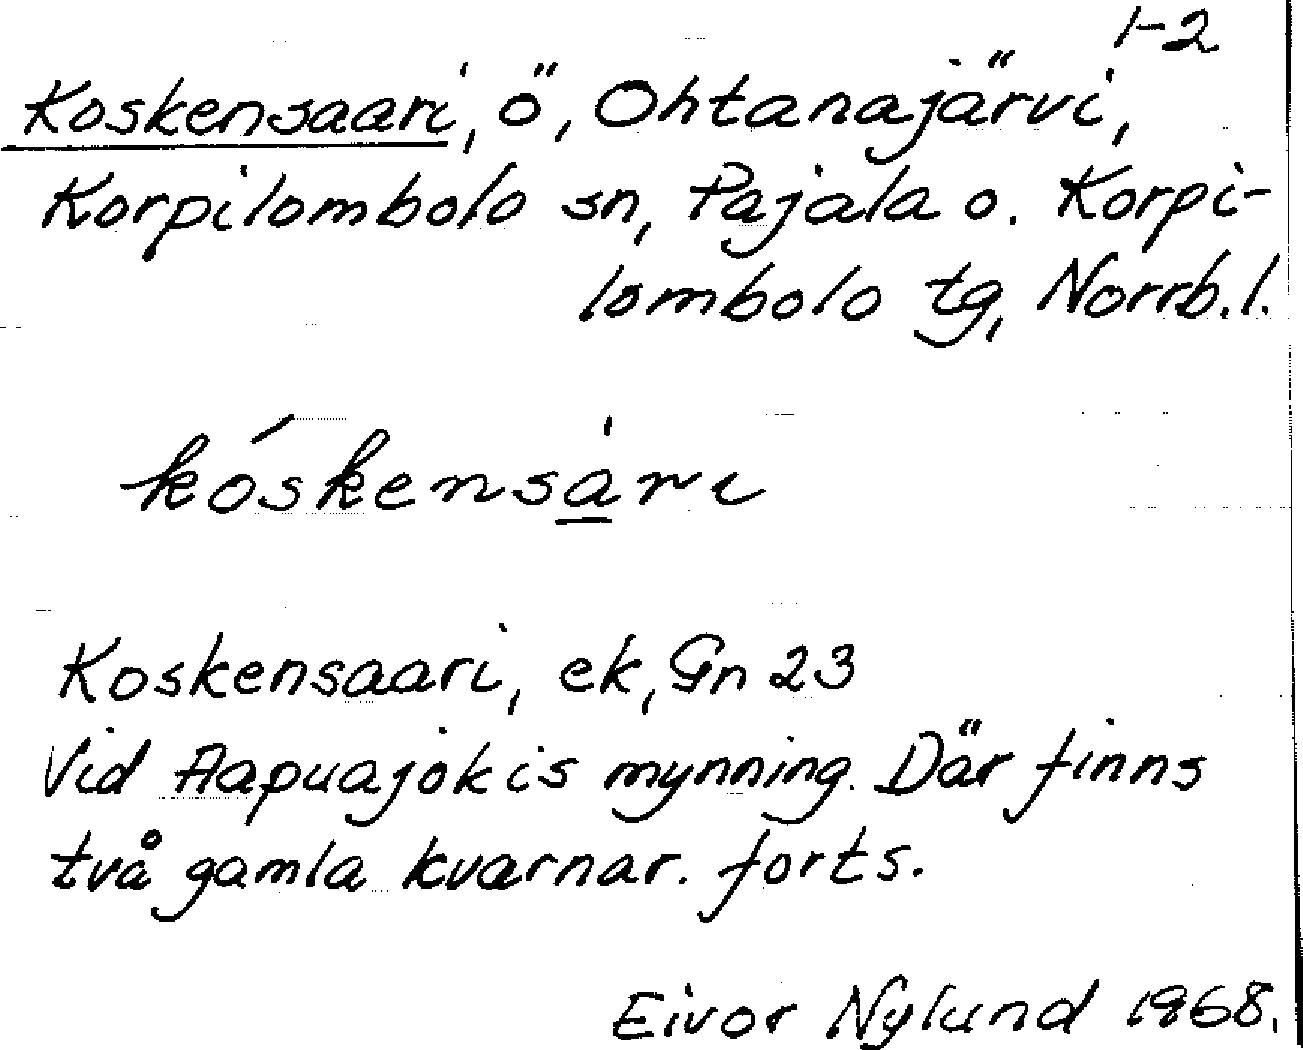 1-2
Koskensaari, ö, Ohtanajärvi,
Korpilombolo sn, Pajala o. Korpi-
lombolo tg, Norrb.l.
kóskensȧ̲ri
Koskensaari, ek, Gn 23
Vid Aapuajokis mynning. Där finns
två gamla kvarnar. forts.
Eivor Nylund 1968.